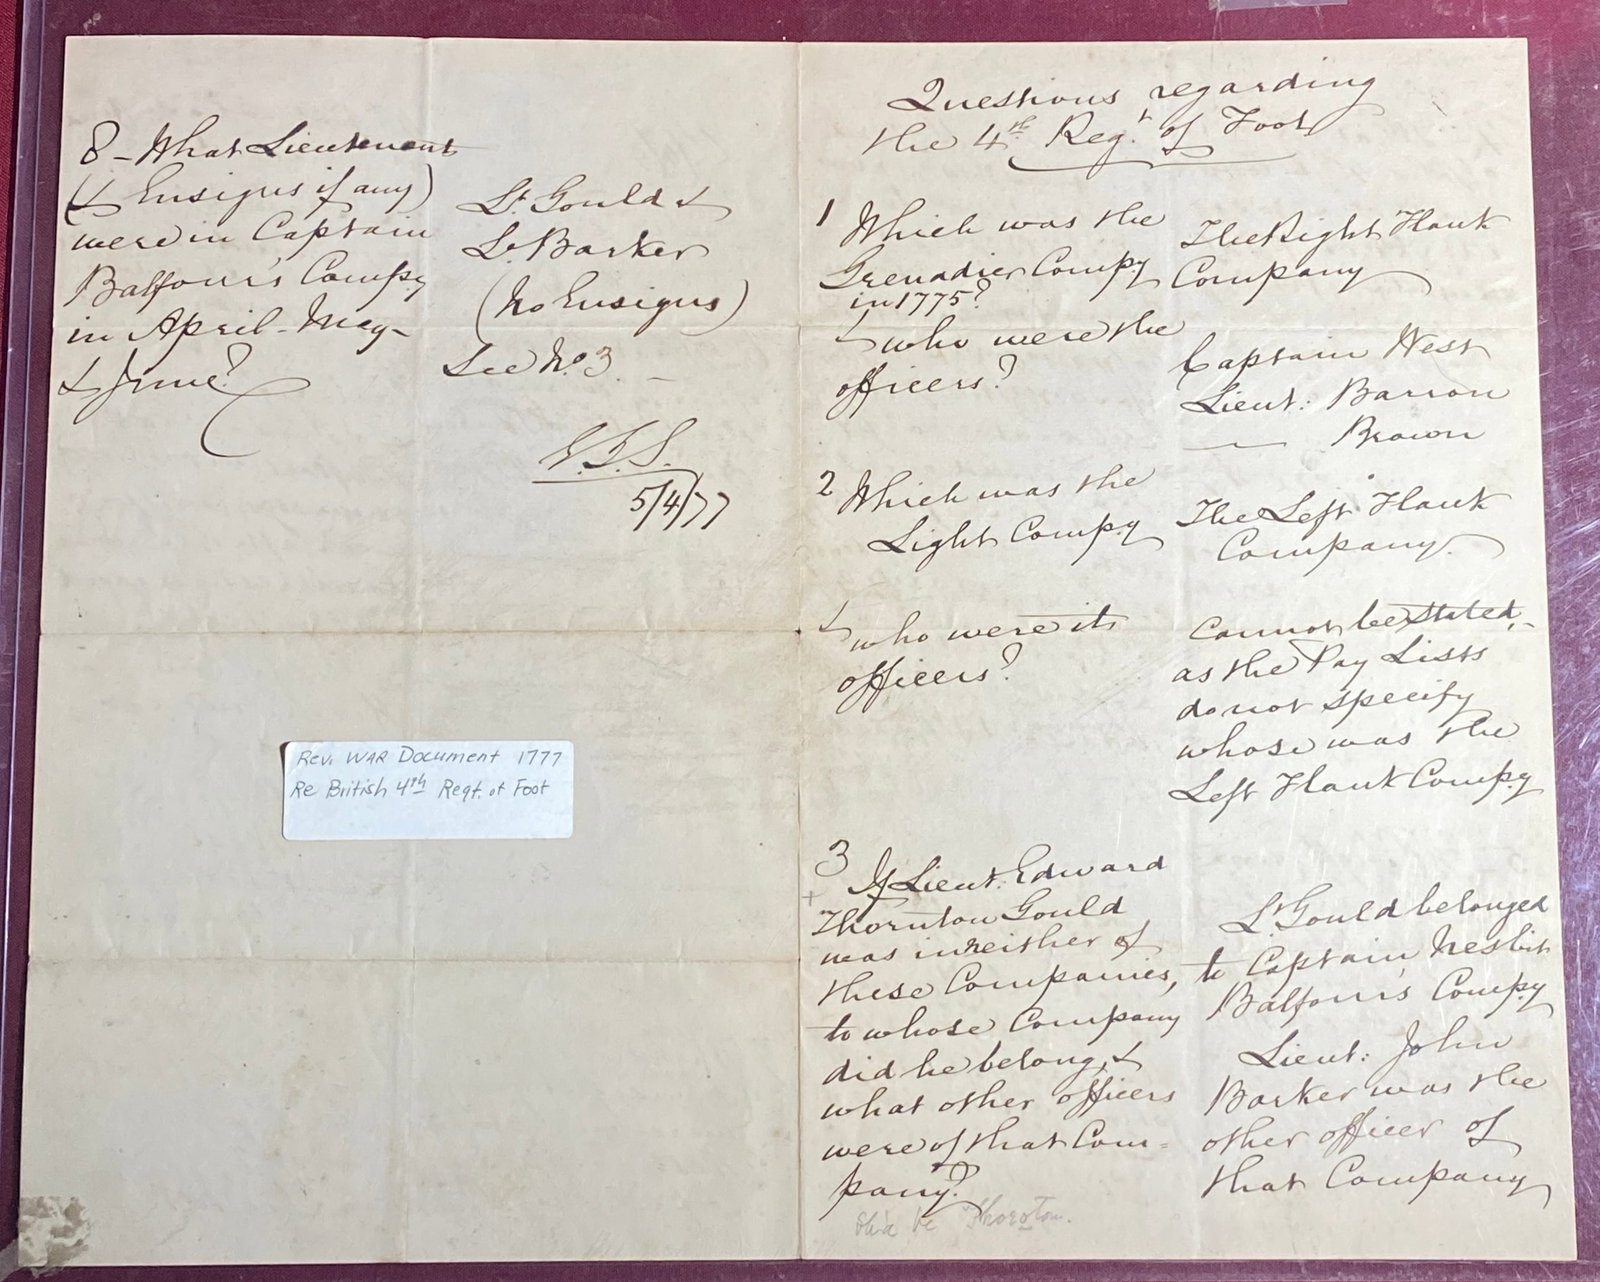 8 - What Lieutenant
(& Ensigns if any)
were in Captain
Balfour's Compy
in April - May -
& June?
Lt. Gould &
Lt. Barker
(No Ensigns)
See No. 3. -
5/4/77
Rev. WAR Document 1777
Re British 4th Regt. of Foot
Questions regarding
the 4th Regt. of Foot
1 Which was the
Grenadier Compy
in 1775?
& who were the
officers?
The Right Flank
Company
Captain West
Lieut: Barron
— Brown
2 Which was the
Light Compy
The Left Flank
Company.
& who were its
officers?
Cannot be stated,
as the Pay Lists
do not specify
whose was the
Left Flank Compy
3 If Lieut: Edward
+
Thornton Gould
was in neither of
these Companies,
to whose Company
did he belong, &
what other officers
were of that Com=
pany?
Lt. Gould belonged
to Captain Nesbit
Balfour's Compy
Lieut: John
Barker was the
other officer of
that Company
be Thoroton.